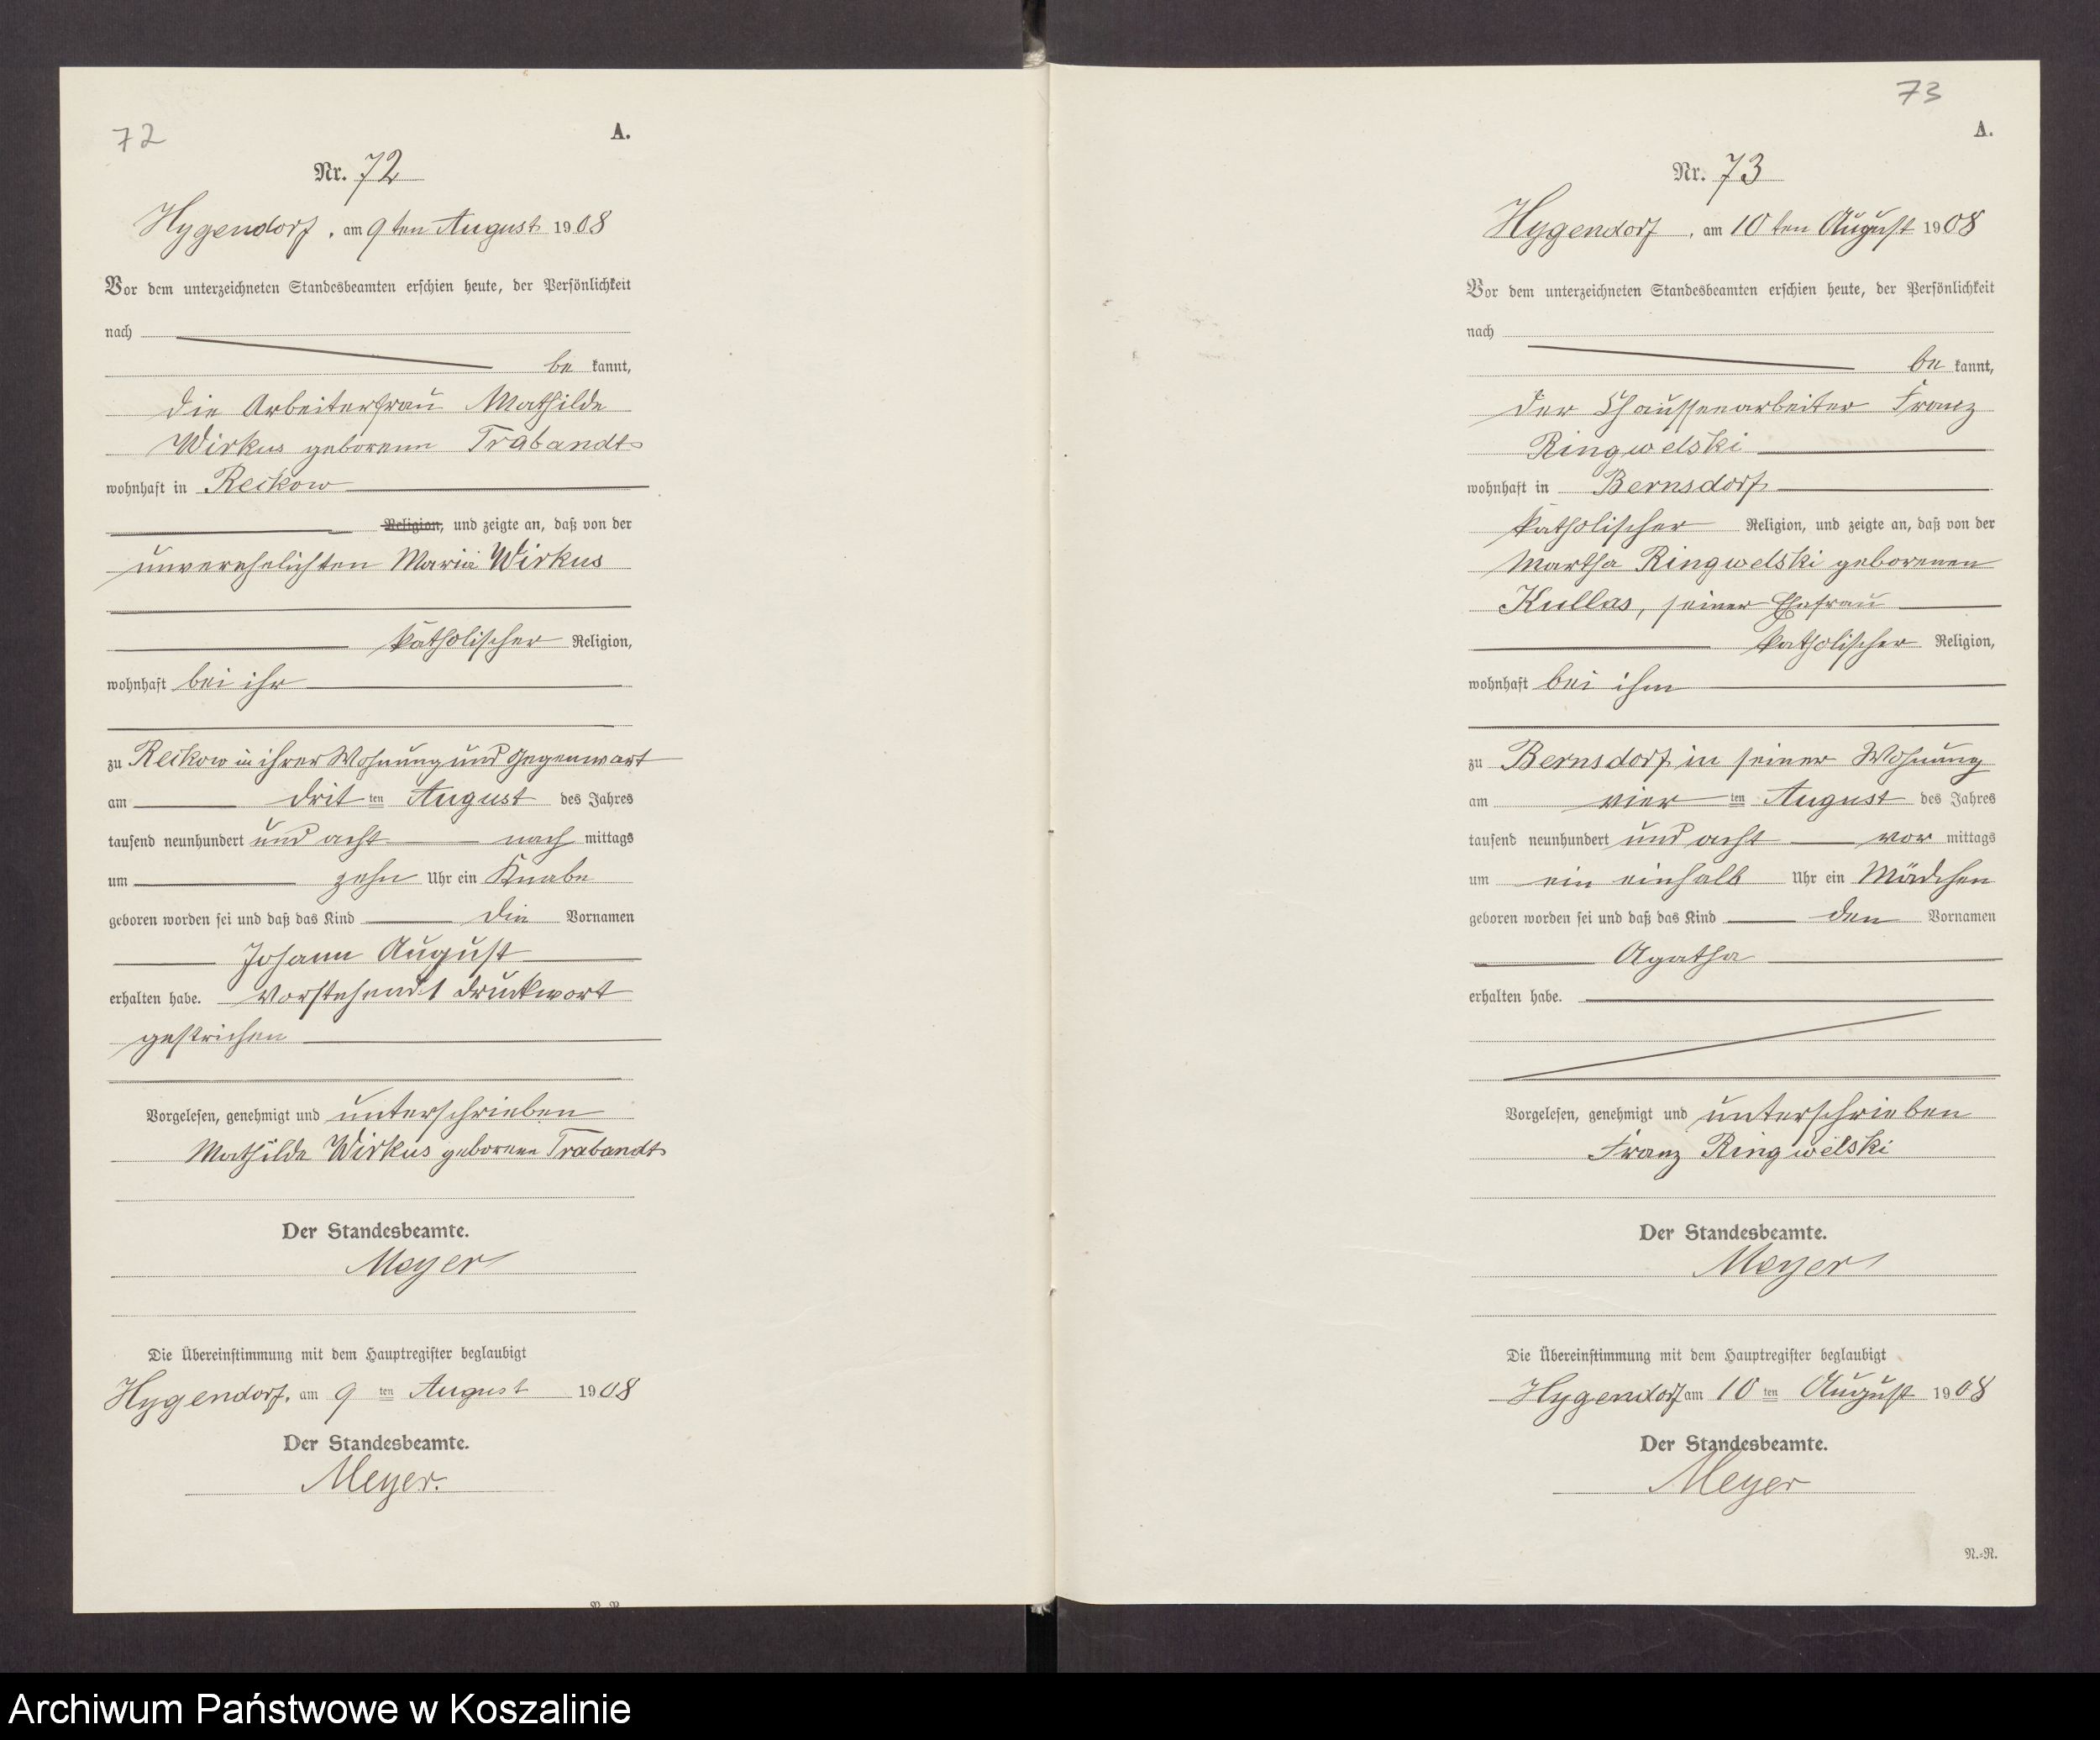 72
A.
Nr. 72
Hygendorf, am 9ten August 1908
Vor dem unterzeichneten Standesbeamten erschien heute, der Persönlichkeit
nach
be kannt,
die Arbeiterfrau Mathilde
Wirkus geborene Trabandt
wohnhaft in Reckow
Religion, und zeigte an, daß von der
unverehelichten Maria Wirkus
katholischer Religion,
wohnhaft bei ihr
zu Reckow in ihrer Wohnung und Gegenwart
am drit ten August des Jahres
tausend neunhundert und acht nach mittags
um zehn Uhr ein Knabe
geboren worden sei und daß das Kind die Vornamen
Johann August
erhalten habe. Vorstehend 1 Druckwort
gestrichen
Vorgelesen, genehmigt und unterschrieben
Mathilde Wirkus geborene Trabandt
Der Standesbeamte.
Meyer
Die Übereinstimmung mit dem Hauptregister beglaubigt
Hygendorf, am 9 ten August 1908
Der Standesbeamte.
Meyer.
73
A.
Nr. 73
Hygendorf, am 10ten August 1908
Vor dem unterzeichneten Standesbeamten erschien heute, der Persönlichkeit
nach
be kannt,
der Chausseearbeiter Franz
Ringwelski
wohnhaft in Bernsdorf
katholischer Religion, und zeigte an, daß von der
Martha Ringwelski geborenen
Kullas, seiner Ehefrau
katholischer Religion,
wohnhaft bei ihm
zu Bernsdorf in seiner Wohnung
am vier ten August des Jahres
tausend neunhundert und acht vor mittags
um ein einhalb Uhr ein Mädchen
geboren worden sei und daß das Kind den Vornamen
Agatha
erhalten habe.
Vorgelesen, genehmigt und unterschrieben
Franz Ringwelski
Der Standesbeamte.
Meyer
Die Übereinstimmung mit dem Hauptregister beglaubigt
Hygendorf am 10 ten August 1908
Der Standesbeamte.
Meyer
N.-R.
Archiwum Państwowe w Koszalinie